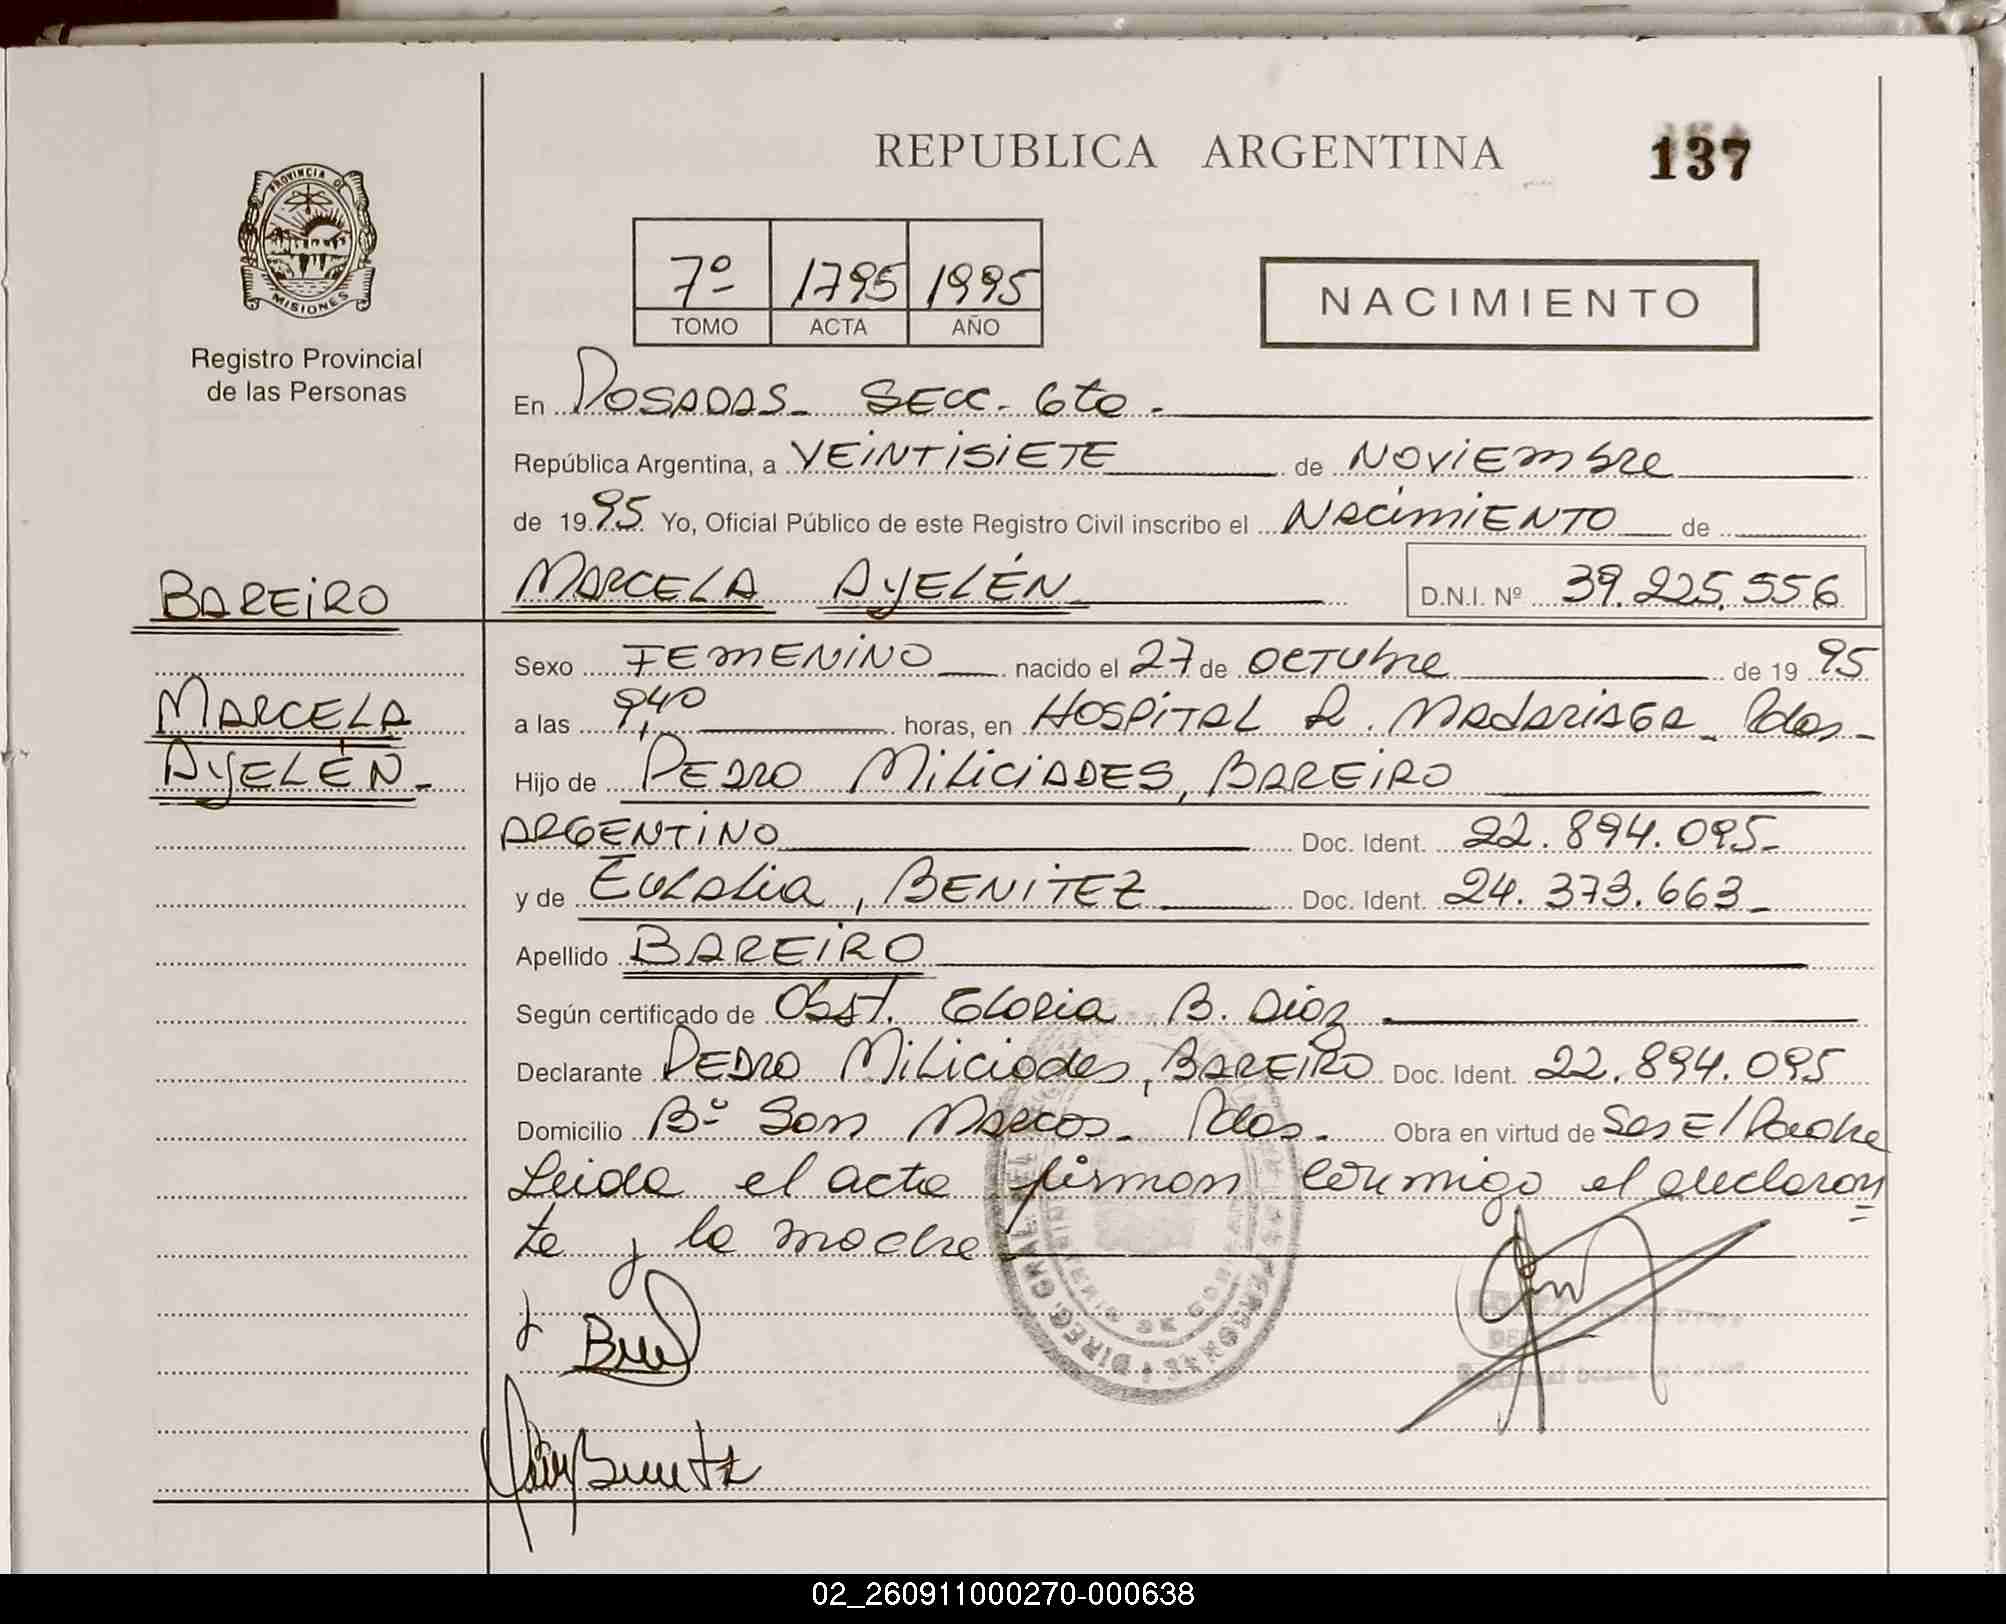 REPUBLICA ARGENTINA
137
PROVINCIA DE
MISIONES
Registro Provincial
de las Personas
7º 1795 1995
TOMO ACTA AÑO
NACIMIENTO
En POSADAS - SECC. 6ta -
República Argentina, a VEINTISIETE de NOVIEMBRE
de 1995 Yo, Oficial Público de este Registro Civil inscribo el NACIMIENTO de
BAREIRO
MARCELA AYELÉN D.N.I. Nº 39.225.556
MARCELA
AYELÉN -
Sexo FEMENINO nacido el 27 de OCTUBRE de 1995
a las 9,40 horas, en HOSPITAL R. MADARIAGA - Pdas -
Hijo de PEDRO MILICIADES, BAREIRO
ARGENTINO Doc. Ident. 22.894.095 -
y de EULALIA, BENITEZ Doc. Ident. 24.373.663 -
Apellido BAREIRO
Según certificado de Obst. GLORIA B. Díaz
Declarante PEDRO Miliciades, BAREIRO Doc. Ident. 22.894.095
Domicilio Bº San Marcos - Pdas. - Obra en virtud de Ser El Padre
Leida el acta firman conmigo el declaran
te y la madre
DIREG. GRAL. DEL
02_260911000270-000638